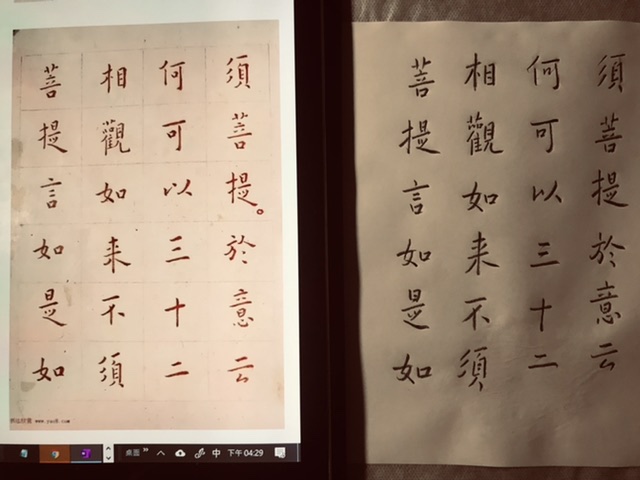 須菩提。於意云
何可以三十二
相觀如来不須
菩提言如是如
桌面 中 下午 04:29
須菩提於意云
何可以三十二
相觀如来不須
菩提言如是如